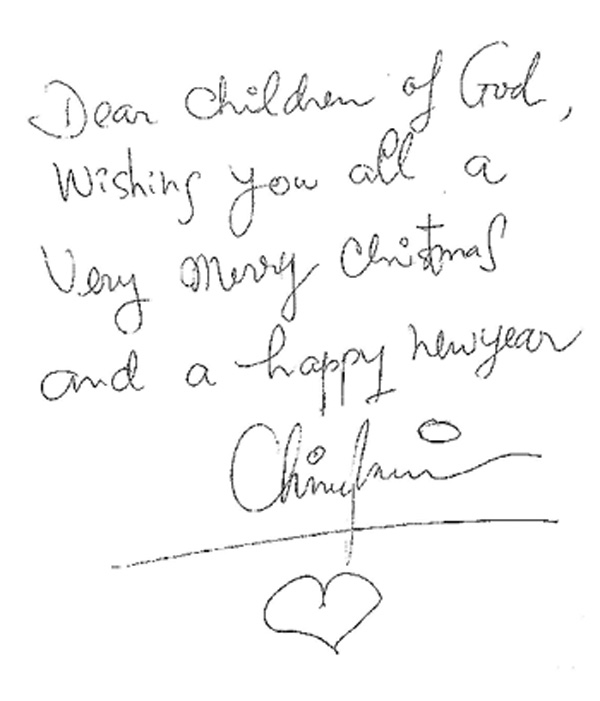 Dear children of God,
Wishing you all a
Very merry christmas
and a happy newyear